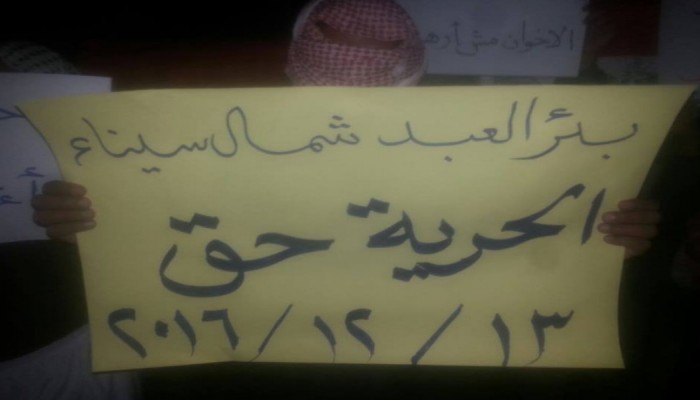 الاخوان مش أره
بئر العبد شمال سيناء
الحرية حق
١٣ / ١٢ / ٢٠١٦